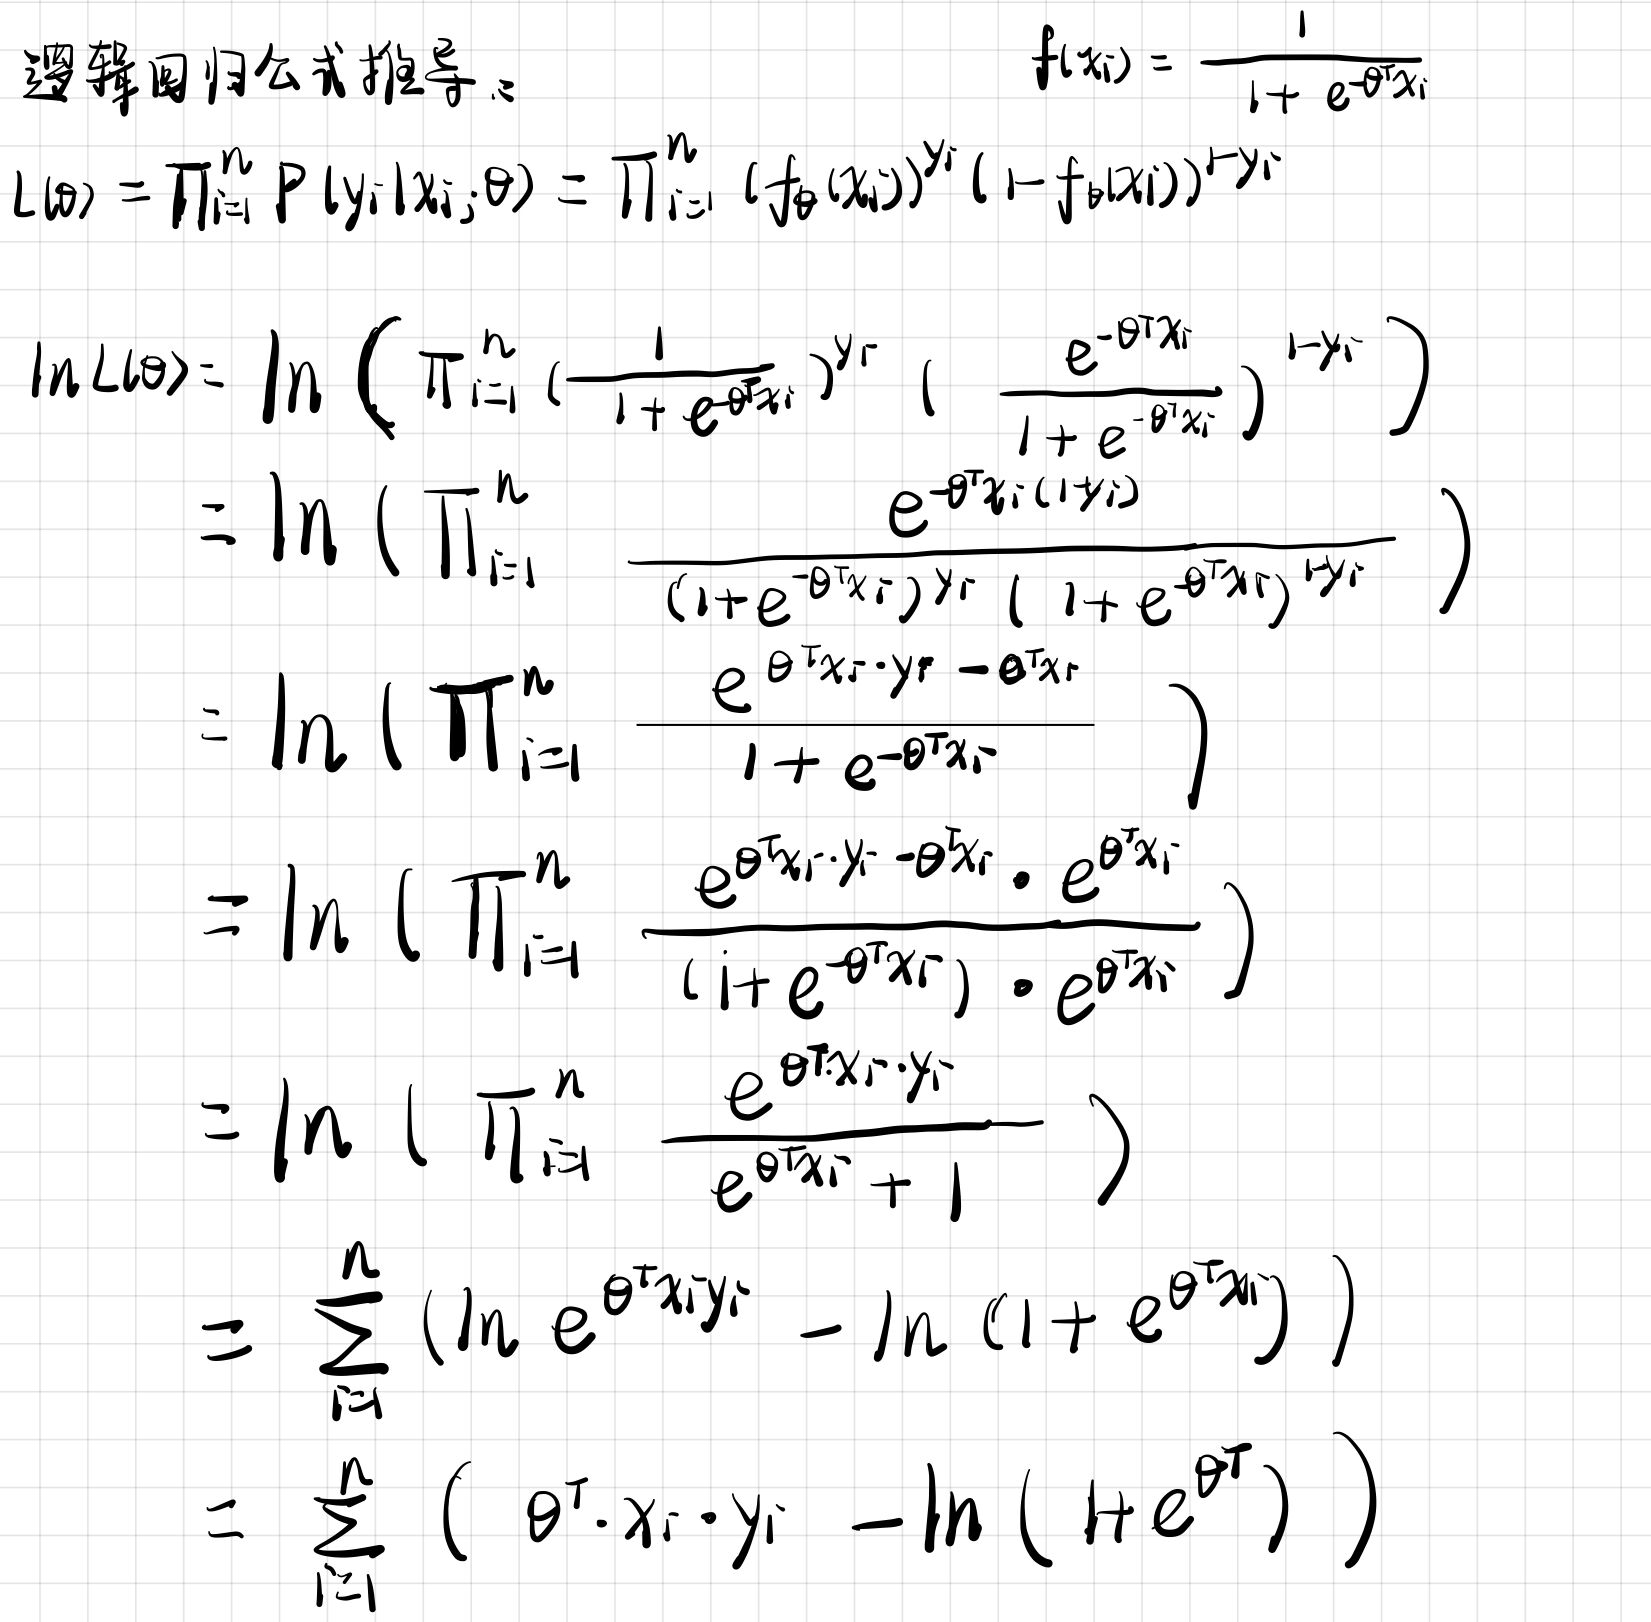 逻辑回归公式推导： f(xᵢ) = 1 / (1 + e^(-θᵀxᵢ))
L(θ) = ∏ⁿᵢ₌₁ P(yᵢ|xᵢ;θ) = ∏ⁿᵢ₌₁ (f_θ(xᵢ))^(yᵢ) (1-f_θ(xᵢ))^(1-yᵢ)
ln L(θ) = ln (∏ⁿᵢ₌₁ (1 / (1 + e^(-θᵀxᵢ)))^(yᵢ) (e^(-θᵀxᵢ) / (1 + e^(-θᵀxᵢ)))^(1-yᵢ))
= ln (∏ⁿᵢ₌₁ e^(-θᵀxᵢ(1-yᵢ)) / ((1+e^(-θᵀxᵢ))^(yᵢ) (1+e^(-θᵀxᵢ))^(1-yᵢ)))
= ln (∏ⁿᵢ₌₁ e^(θᵀxᵢ·yᵢ - θᵀxᵢ) / (1 + e^(-θᵀxᵢ)))
= ln (∏ⁿᵢ₌₁ (e^(θᵀxᵢ·yᵢ - θᵀxᵢ) · e^(θᵀxᵢ)) / ((1+e^(-θᵀxᵢ)) · e^(θᵀxᵢ)))
= ln (∏ⁿᵢ₌₁ e^(θᵀ·xᵢ·yᵢ) / (e^(θᵀxᵢ) + 1))
= ∑ⁿᵢ₌₁ (ln e^(θᵀxᵢyᵢ) - ln (1 + e^(θᵀxᵢ)))
= ∑ⁿᵢ₌₁ (θᵀ·xᵢ·yᵢ - ln (1+e^(θᵀ)))